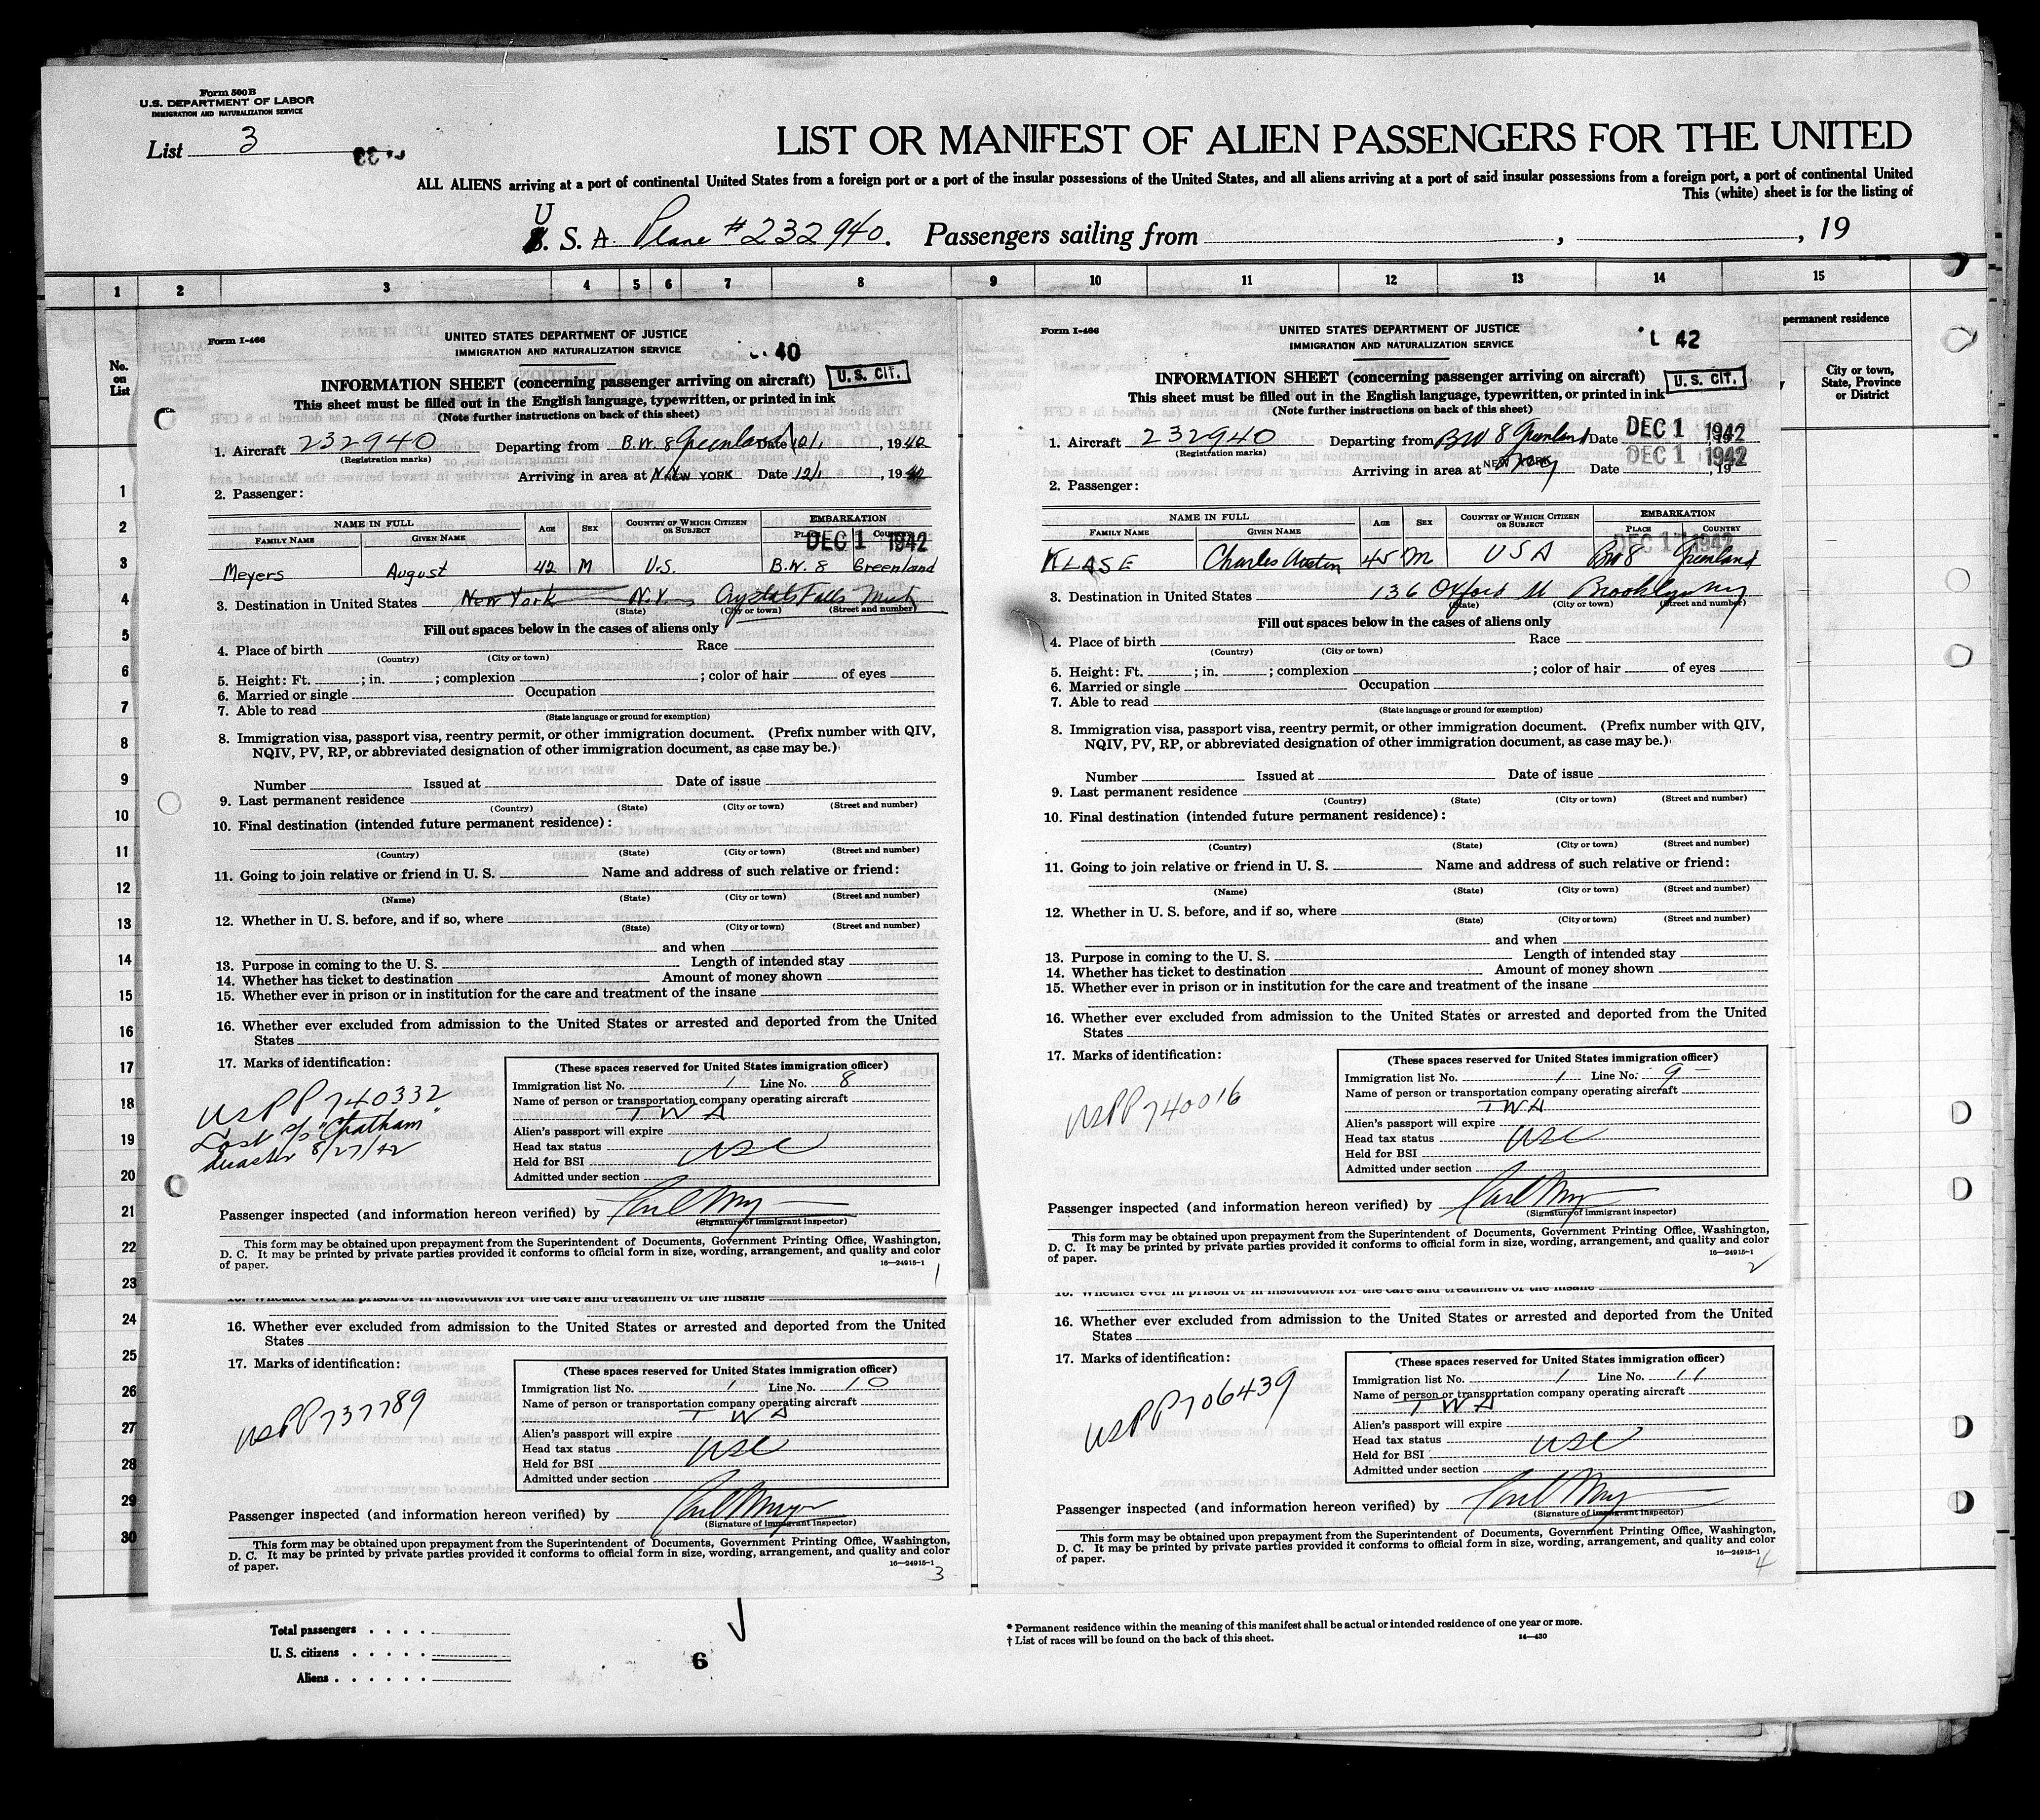 Form 500 B
U.S. DEPARTMENT OF LABOR
IMMIGRATION AND NATURALIZATION SERVICE
List 3
LIST OR MANIFEST OF ALIEN PASSENGERS FOR THE UNITED
ALL ALIENS arriving at a port of continental United States from a foreign port or a port of the insular possessions of the United States, and all aliens arriving at a port of said insular possessions from a foreign port, a port of continental United
This (white) sheet is for the listing of
U. S. A. Plane # 232940. Passengers sailing from , , 19
1 2 3 4 5 6 7 8 9 10 11 12 13 14 15
No. on List
permanent residence
City or town, State, Province or District
1
2
3
4
5
6
7
8
9
10
11
12
13
14
15
16
17
18
19
20
21
22
23
24
25
26
27
28
29
30
Form I-466
UNITED STATES DEPARTMENT OF JUSTICE
IMMIGRATION AND NATURALIZATION SERVICE
40
INFORMATION SHEET (concerning passenger arriving on aircraft) U. S. CIT.
This sheet must be filled out in the English language, typewritten, or printed in ink
(Note further instructions on back of this sheet)
1. Aircraft 232940 Departing from B.W. 8 Greenland Date 12/1, 1942
(Registration marks)
Arriving in area at N.Y. NEW YORK Date 12/1, 1942
2. Passenger:
NAME IN FULL AGE SEX COUNTRY OF WHICH CITIZEN OR SUBJECT EMBARKATION
FAMILY NAME GIVEN NAME PLACE COUNTRY
DEC 1 1942
Meyers August 42 M U.S. B.W. 8 Greenland
3. Destination in United States New York N.Y. Crystal Falls Mich
(State) (City or town) (Street and number)
Fill out spaces below in the cases of aliens only
4. Place of birth Race
(Country) (City or town)
5. Height: Ft. ; in. ; complexion ; color of hair of eyes
6. Married or single Occupation
7. Able to read
(State language or ground for exemption)
8. Immigration visa, passport visa, reentry permit, or other immigration document. (Prefix number with QIV,
NQIV, PV, RP, or abbreviated designation of other immigration document, as case may be.)
Number Issued at Date of issue
9. Last permanent residence
(Country) (State) (City or town) (Street and number)
10. Final destination (intended future permanent residence):
(Country) (State) (City or town) (Street and number)
11. Going to join relative or friend in U. S. Name and address of such relative or friend:
(Name) (State) (City or town) (Street and number)
12. Whether in U. S. before, and if so, where
(State) (City or town) (Street and number)
and when
13. Purpose in coming to the U. S. Length of intended stay
14. Whether has ticket to destination Amount of money shown
15. Whether ever in prison or in institution for the care and treatment of the insane
16. Whether ever excluded from admission to the United States or arrested and deported from the United
States
17. Marks of identification:
USPP 740332
Lost s/s "Chatham"
disaster 8/27/42
(These spaces reserved for United States immigration officer)
Immigration list No. 1 Line No. 8
Name of person or transportation company operating aircraft
TWA
Alien's passport will expire
Head tax status USC
Held for BSI
Admitted under section
Passenger inspected (and information hereon verified) by
(Signature of immigrant inspector)
This form may be obtained upon prepayment from the Superintendent of Documents, Government Printing Office, Washington,
D. C. It may be printed by private parties provided it conforms to official form in size, wording, arrangement, and quality and color
of paper. 16—24915-1
1
Form I-466
UNITED STATES DEPARTMENT OF JUSTICE
IMMIGRATION AND NATURALIZATION SERVICE
42
INFORMATION SHEET (concerning passenger arriving on aircraft) U. S. CIT.
This sheet must be filled out in the English language, typewritten, or printed in ink
(Note further instructions on back of this sheet)
1. Aircraft 232940 Departing from BW 8 Greenland Date DEC 1 1942
(Registration marks)
Arriving in area at NEW YORK Date DEC 1 1942
2. Passenger:
NAME IN FULL AGE SEX COUNTRY OF WHICH CITIZEN OR SUBJECT EMBARKATION
FAMILY NAME GIVEN NAME PLACE COUNTRY
DEC 1 1942
KLASE Charles Austin 45 M USA BW 8 Greenland
3. Destination in United States 136 Oxford St Brooklyn NY
(State) (City or town) (Street and number)
Fill out spaces below in the cases of aliens only
4. Place of birth Race
(Country) (City or town)
5. Height: Ft. ; in. ; complexion ; color of hair of eyes
6. Married or single Occupation
7. Able to read
(State language or ground for exemption)
8. Immigration visa, passport visa, reentry permit, or other immigration document. (Prefix number with QIV,
NQIV, PV, RP, or abbreviated designation of other immigration document, as case may be.)
Number Issued at Date of issue
9. Last permanent residence
(Country) (State) (City or town) (Street and number)
10. Final destination (intended future permanent residence):
(Country) (State) (City or town) (Street and number)
11. Going to join relative or friend in U. S. Name and address of such relative or friend:
(Name) (State) (City or town) (Street and number)
12. Whether in U. S. before, and if so, where
(State) (City or town) (Street and number)
and when
13. Purpose in coming to the U. S. Length of intended stay
14. Whether has ticket to destination Amount of money shown
15. Whether ever in prison or in institution for the care and treatment of the insane
16. Whether ever excluded from admission to the United States or arrested and deported from the United
States
17. Marks of identification:
USPP 740016
(These spaces reserved for United States immigration officer)
Immigration list No. 1 Line No. 9
Name of person or transportation company operating aircraft
TWA
Alien's passport will expire
Head tax status USC
Held for BSI
Admitted under section
Passenger inspected (and information hereon verified) by
(Signature of immigrant inspector)
This form may be obtained upon prepayment from the Superintendent of Documents, Government Printing Office, Washington,
D. C. It may be printed by private parties provided it conforms to official form in size, wording, arrangement, and quality and color
of paper. 16—24915-1
2
15. Whether ever in prison or in institution for the care and treatment of the insane
16. Whether ever excluded from admission to the United States or arrested and deported from the United
States
17. Marks of identification:
USPP 737789
(These spaces reserved for United States immigration officer)
Immigration list No. 1 Line No. 10
Name of person or transportation company operating aircraft
TWA
Alien's passport will expire
Head tax status USC
Held for BSI
Admitted under section
Passenger inspected (and information hereon verified) by
(Signature of immigrant inspector)
This form may be obtained upon prepayment from the Superintendent of Documents, Government Printing Office, Washington,
D. C. It may be printed by private parties provided it conforms to official form in size, wording, arrangement, and quality and color
of paper. 16—24915-1
3
15. Whether ever in prison or in institution for the care and treatment of the insane
16. Whether ever excluded from admission to the United States or arrested and deported from the United
States
17. Marks of identification:
USPP 706439
(These spaces reserved for United States immigration officer)
Immigration list No. 1 Line No. 11
Name of person or transportation company operating aircraft
TWA
Alien's passport will expire
Head tax status USC
Held for BSI
Admitted under section
Passenger inspected (and information hereon verified) by
(Signature of immigrant inspector)
This form may be obtained upon prepayment from the Superintendent of Documents, Government Printing Office, Washington,
D. C. It may be printed by private parties provided it conforms to official form in size, wording, arrangement, and quality and color
of paper. 16—24915-1
4
Total passengers
U. S. citizens
Aliens
6
* Permanent residence within the meaning of this manifest shall be actual or intended residence of one year or more.
† List of races will be found on the back of this sheet. 14—430